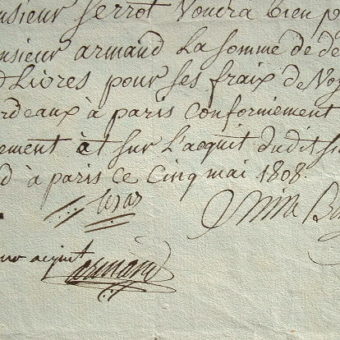 onsieur Serrot Voudra bien p
onsieur armand La Somme de de
Livres pour ses fraix de Voy
rdeaux à paris Conformement
ement et Sur L'acquit dudit Si
à paris ce Cinq mai 1808
acquit
armand